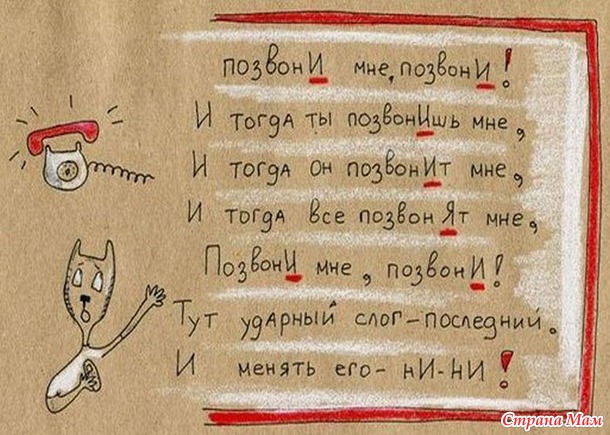 позвонИ мне, позвонИ!
И тогда ты позвонИшь мне,
И тогда он позвонИт мне,
И тогда все позвонЯт мне,
ПозвонИ мне, позвонИ!
Тут ударный слог-последний.
И менять его- нИ-нИ!
Страна Мам